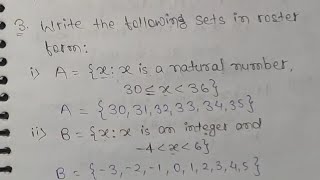 3. Write the following sets in roster
form:
i) A = {x: x is a natural number,
30 ≤ x < 36}
A = {30, 31, 32, 33, 34, 35}
ii) B = {x: x is an integer and
-4 < x < 6}
B = {-3, -2, -1, 0, 1, 2, 3, 4, 5}